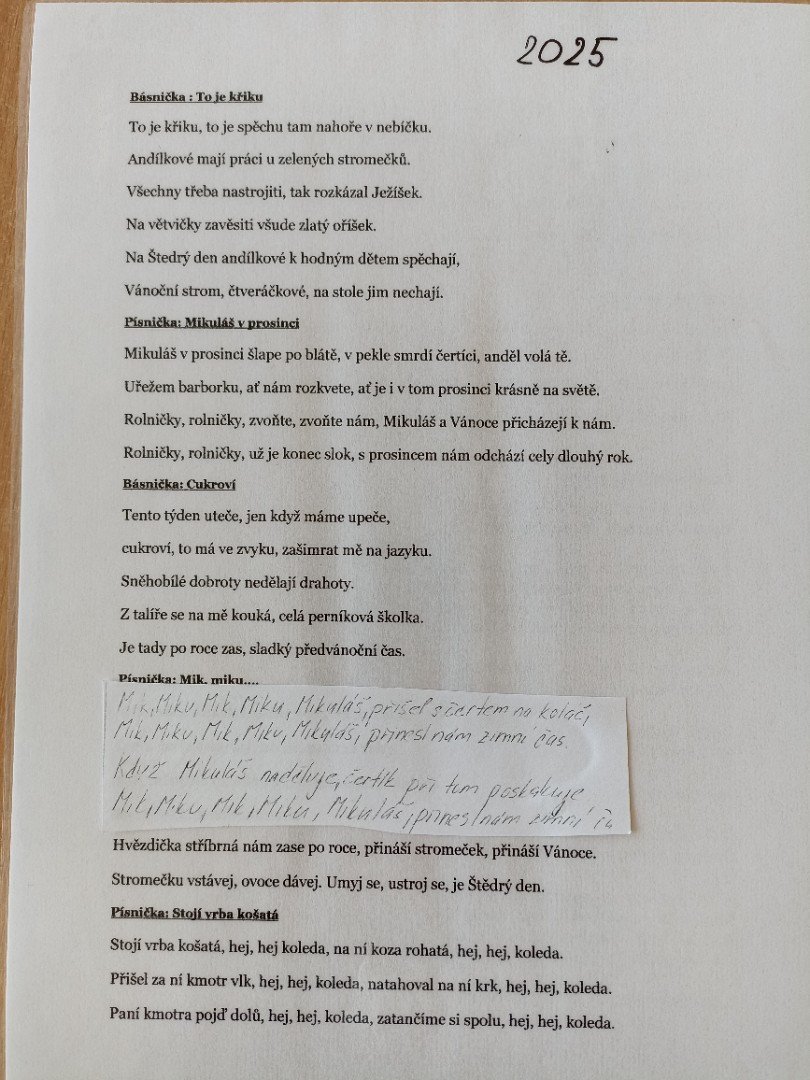 2025
Básnička : To je křiku
To je křiku, to je spěchu tam nahoře v nebíčku.
Andílkové mají práci u zelených stromečků.
Všechny třeba nastrojiti, tak rozkázal Ježíšek.
Na větvičky zavěsiti všude zlatý oříšek.
Na Štedrý den andílkové k hodným dětem spěchají,
Vánoční strom, čtveráčkové, na stole jim nechají.
Písnička: Mikuláš v prosinci
Mikuláš v prosinci šlape po blátě, v pekle smrdí čertíci, anděl volá tě.
Uřežem barborku, ať nám rozkvete, ať je i v tom prosinci krásně na světě.
Rolničky, rolničky, zvoňte, zvoňte nám, Mikuláš a Vánoce přicházejí k nám.
Rolničky, rolničky, už je konec slok, s prosincem nám odchází cely dlouhý rok.
Básnička: Cukroví
Tento týden uteče, jen když máme upeče,
cukroví, to má ve zvyku, zašimrat mě na jazyku.
Sněhobílé dobroty nedělají drahoty.
Z talíře se na mě kouká, celá perníková školka.
Je tady po roce zas, sladký předvánoční čas.
Písnička: Mik, miku....
Mik, Miku, Mik, Miku, Mikuláš, přišel s čertem na koláč,
Mik, Miku, Mik, Miku, Mikuláš, přinesl nám zimní čas.
Když Mikuláš naděluje, čertík při tom poskakuje
Mik, Miku, Mik, Miku, Mikuláš, přinesl nám zimní ča
Hvězdička stříbrná nám zase po roce, přináší stromeček, přináší Vánoce.
Stromečku vstávej, ovoce dávej. Umyj se, ustroj se, je Štědrý den.
Písnička: Stojí vrba košatá
Stojí vrba košatá, hej, hej koleda, na ní koza rohatá, hej, hej, koleda.
Přišel za ní kmotr vlk, hej, hej, koleda, natahoval na ní krk, hej, hej, koleda.
Paní kmotra pojď dolů, hej, hej, koleda, zatančíme si spolu, hej, hej, koleda.